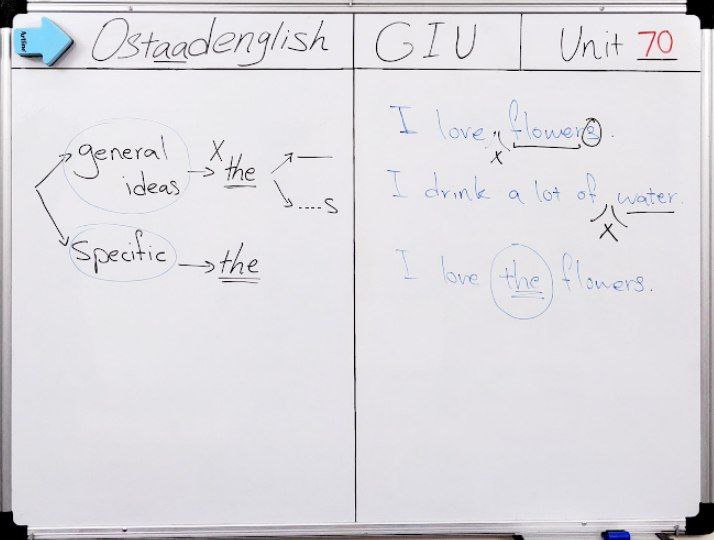 Artline
Ostaadenglish
GIU
Unit 70
general
ideas
X the
....s
Specific
the
I love flowers.
X
I drink a lot of water.
X
I love the flowers.